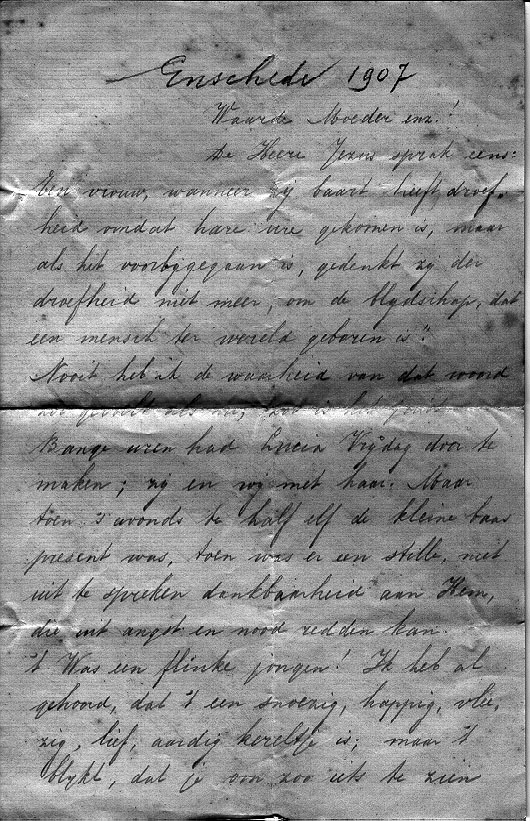 Enschede 1907
Waarde Moeder enz.!
De Heere Jezus sprak eens:
Een vrouw, wanneer zij baart heeft droef-
heid omdat hare ure gekomen is, maar
als het voorbijgegaan is, gedenkt zij der
droefheid niet meer, om de blijdschap, dat
een mensch ter wereld geboren is."
Nooit heb ik de waarheid van dat woord
zoo gevoeld als nu;
Bange uren had Lucia Vrijdag door te
maken; zij en wij met haar. Maar
toen 's avonds te half elf de kleine baas
present was, toen was er een stille, niet
uit te spreken dankbaarheid aan Hem,
die uit angst en nood redden kan.
't Was een flinke jongen! Ik heb al
gehoord, dat 't een snoezig, happig, vlee-
zig, lief, aardig kereltje is; maar 't
blijkt, dat je om zoo iets te zien